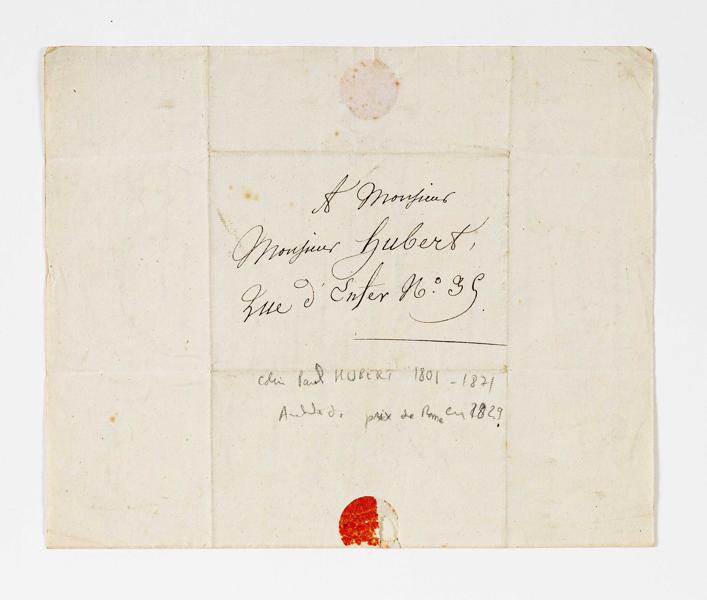 A Monsieur
Monsieur Hubert,
Rue d'Enfer N.° 35.
Paul HUBERT 1801 - 1871
prix de Rome en 1829